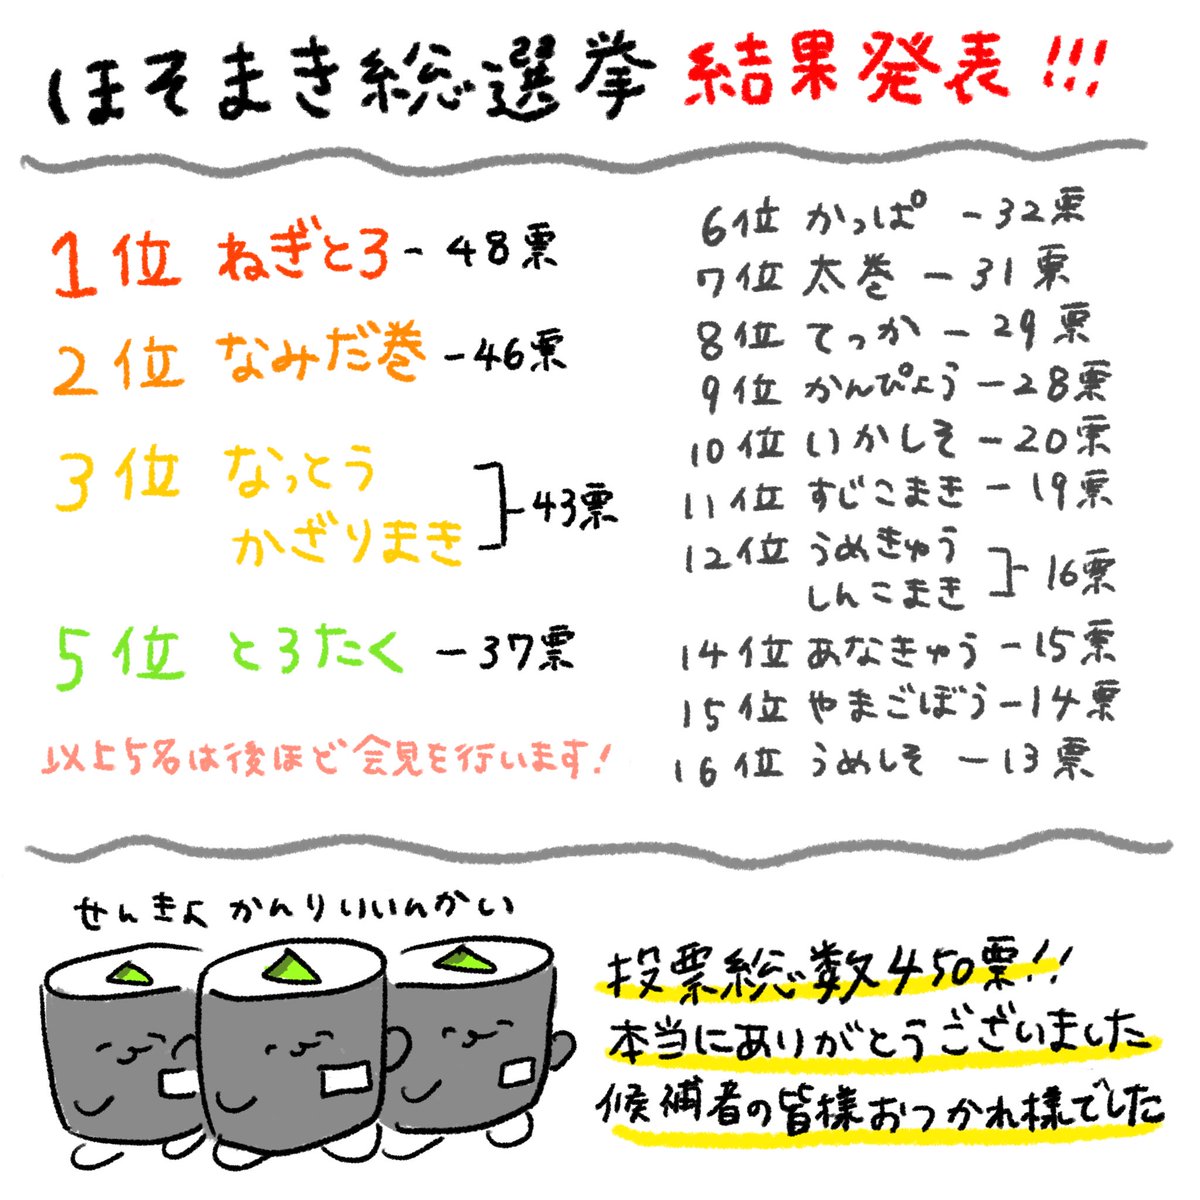 ほそまき総選挙 結果発表!!!
1位 ねぎとろ - 48票
2位 なみだ巻 - 46票
3位 なっとう
かざりまき - 43票
5位 とろたく - 37票
以上5名は後ほど会見を行います!
6位 かっぱ - 32票
7位 太巻 - 31票
8位 てっか - 29票
9位 かんぴょう - 28票
10位 いかしそ - 20票
11位 すじこまき - 19票
12位 うめきゅう
しんこまき - 16票
14位 あなきゅう - 15票
15位 やまごぼう - 14票
16位 うめしそ - 13票
せんきょ かんりいいんかい
投票総数450票!!
本当にありがとうございました
候補者の皆様おつかれ様でした